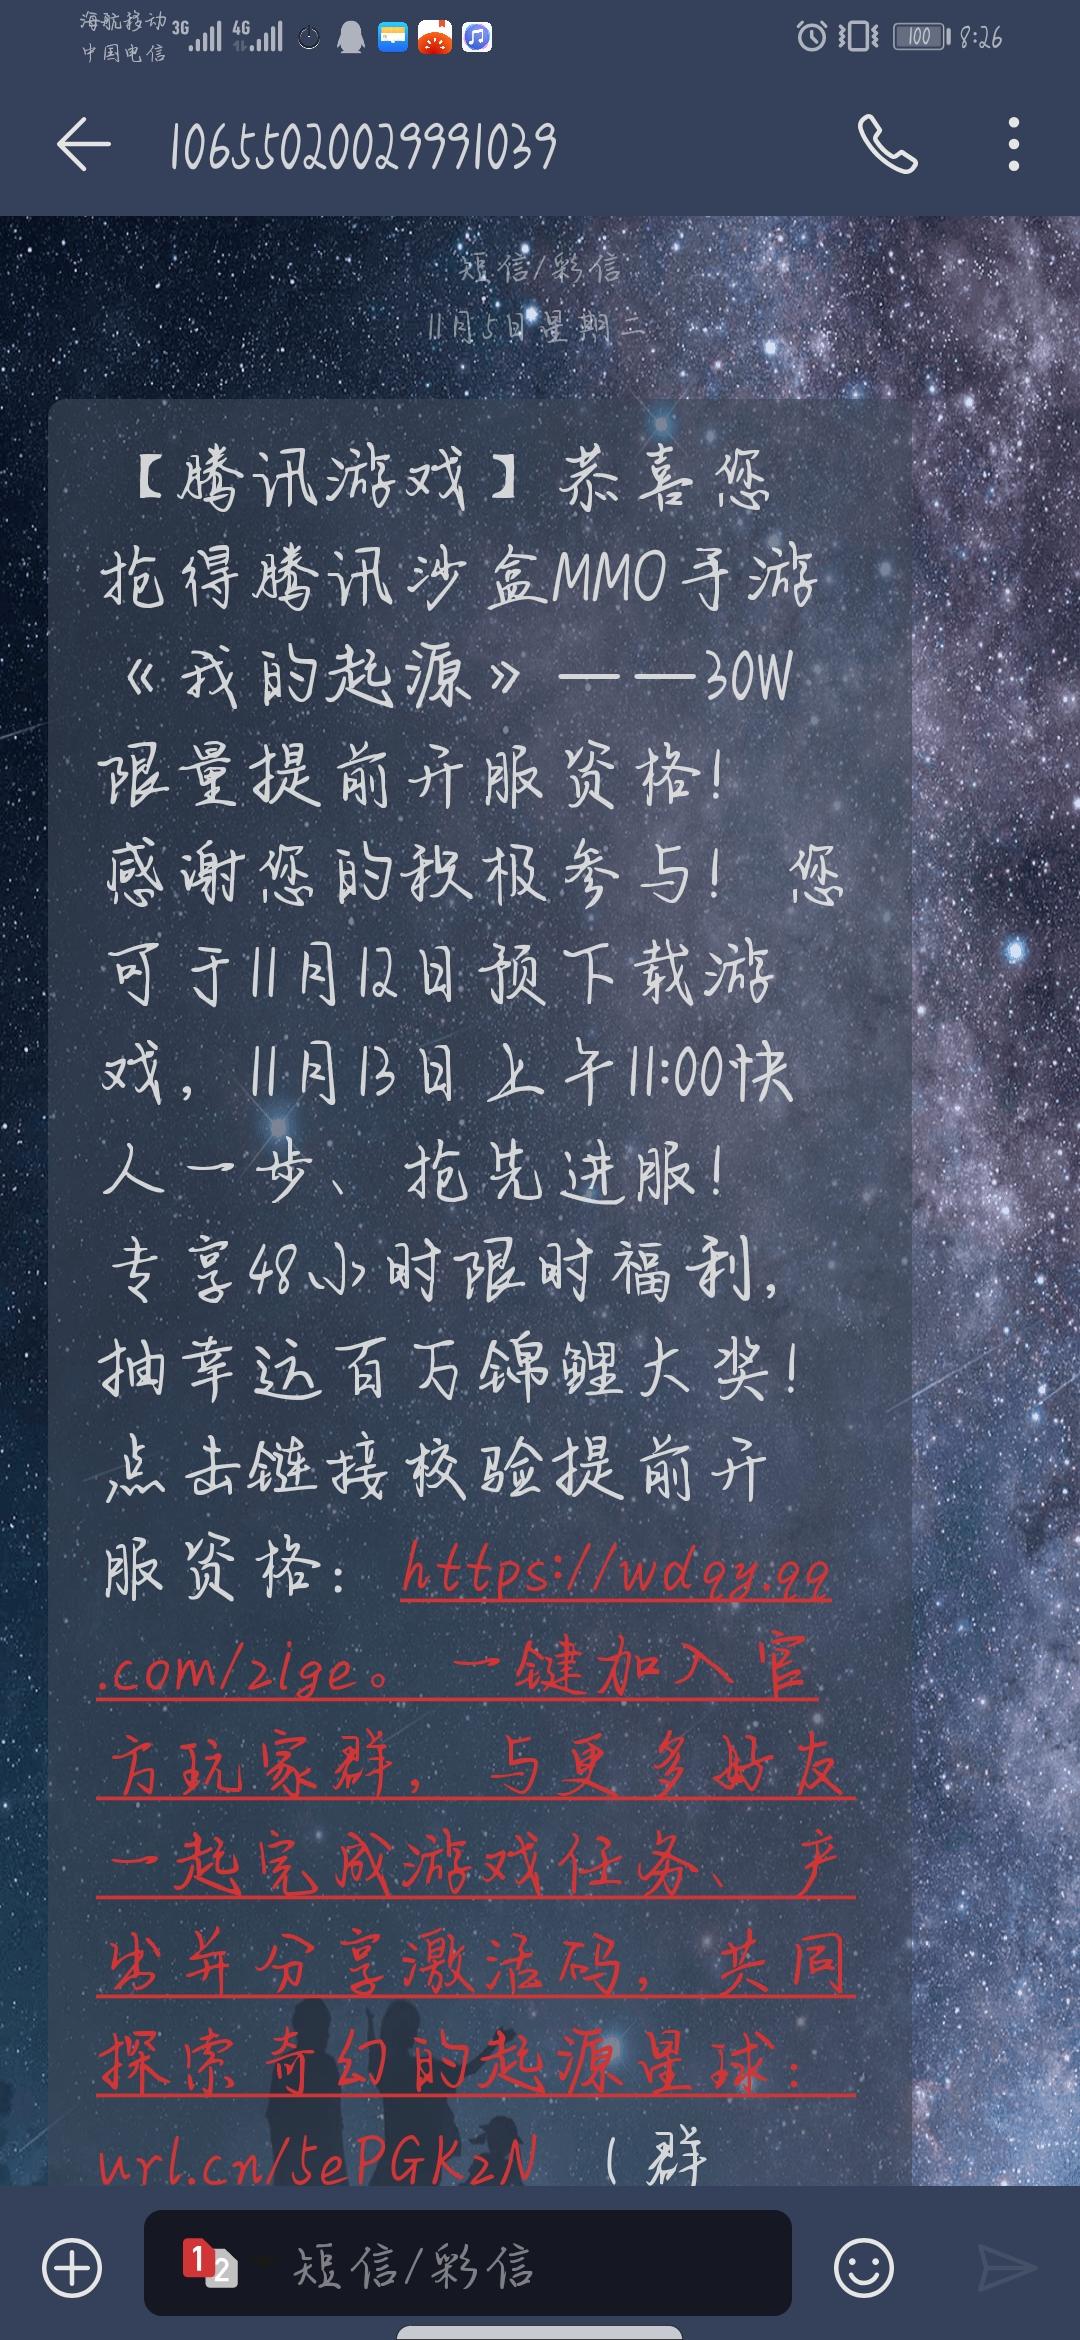 海航移动
中国电信
3G
4G
100
8:26
1065502002999 1039
短信/彩信
11月5日星期二
【腾讯游戏】恭喜您
抢得腾讯沙盒MMO手游
《我的起源》——30W
限量提前开服资格！
感谢您的积极参与！ 您
可于11月12日预下载游
戏，11月13日上午11:00快
人一步、抢先进服！
专享48小时限时福利，
抽幸运百万锦鲤大奖！
点击链接校验提前开
服资格：https://wdqy.qq
.com/zige。一键加入官
方玩家群，与更多好友
一起完成游戏任务、产
出并分享激活码，共同
探索奇幻的起源星球：
url.cn/5ePGKzN （群
1
2
短信/彩信